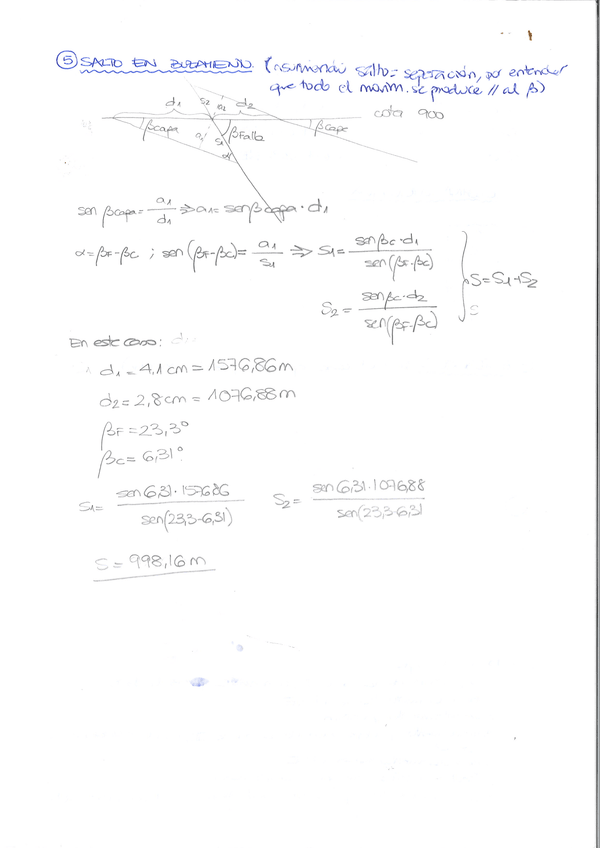 ⑤ SALTO EN BUZAMIENTO (asumiendo salto = separación, por entender
que todo el movim. se produce // al β)
d1 S2 a2 d2
βcapa a1 S1 βFalla βcapa cota 900
α
sen βcapa = a1/d1 ⇒ a1 = senβcapa · d1
α = βF-βC ; sen(βF-βC) = a1/S1 ⇒ S1 = senβc·d1/sen(βF-βC)
S2 = senβc·d2/sen(βF-βC)
S = S1+S2
En este caso:
d1 = 4,1 cm = 1576,86 m
d2 = 2,8 cm = 1076,88 m
βF = 23,3°
βC = 6,31°
S1 = sen 6,31 · 1576,86/sen(23,3-6,31) S2 = sen 6,31 · 1076,88/sen(23,3-6,31
S = 998,16 m